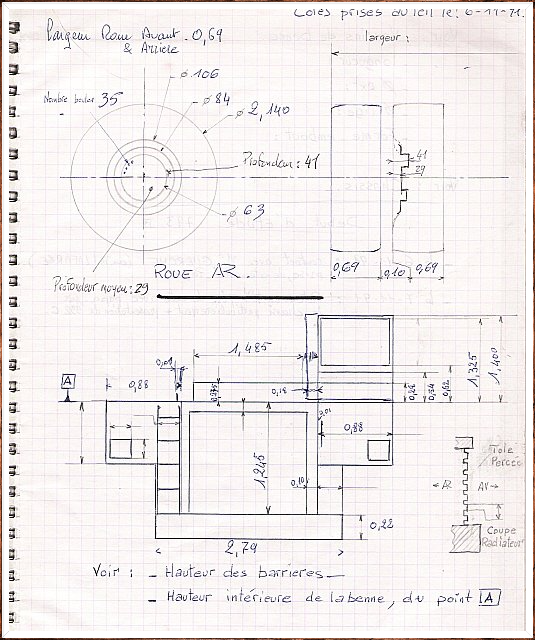 Cotes prises au ICII le : 6-11-71.
Largeur Roue Avant - 0,69
& Arrière
largeur :
ø 106
ø 84
ø 2,140
Nombre boulon 35
Profondeur : 41
41
29
ø 63
Profondeur moyeu : 29
ROUE AR.
0,69 0,10 0,69
1,485
0,88
0,18
1,325
1,400
A
0,88
1,245
0,10
0,22
2,79
Tole
Percée
AR AV
Coupe
Radiateur
Voir : - Hauteur des barrieres -
- Hauteur intérieure de la benne, du point A